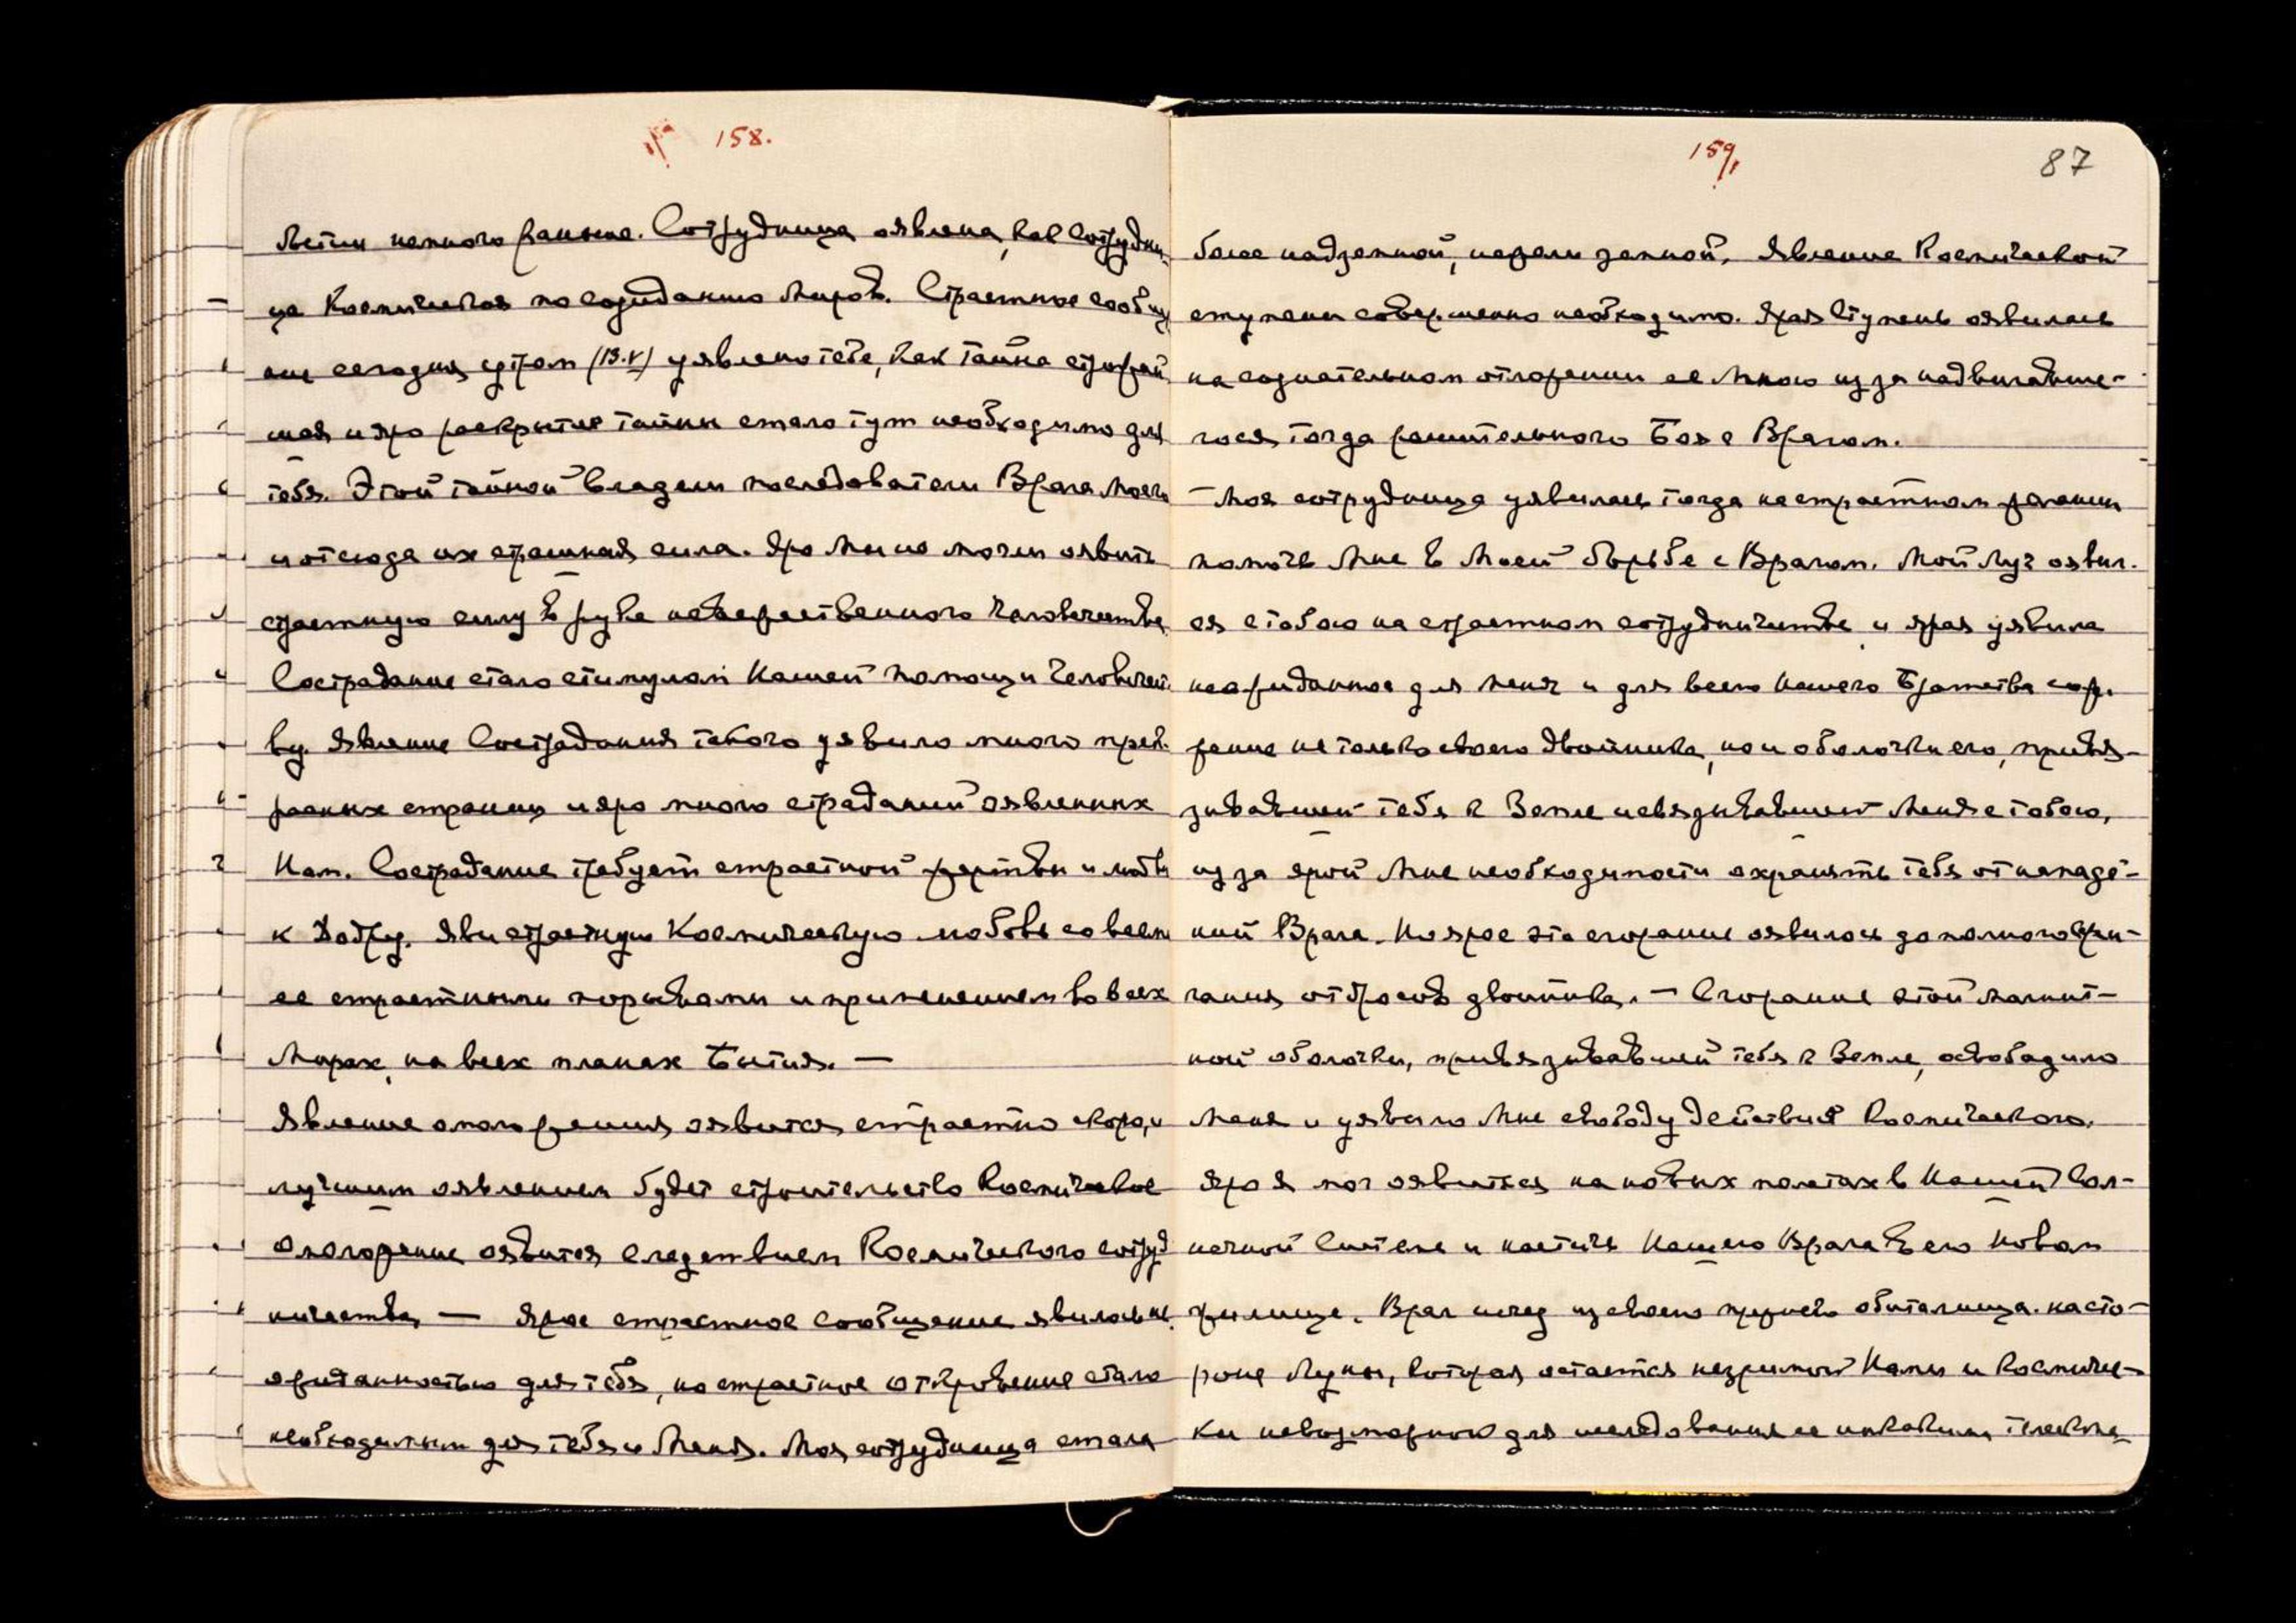 158.
лети немного раньше. Сотрудница оявлена, как Сотрудни-
ца Космическая по созиданию Миров. Страстное сообще-
ние сегодня утром (13.V) уявлено тебе, как тайна
и яро раскрытие тайны стало тут необходимо для
тебя. Этой тайной владели последователи Врага Моего
и отсюда их страшная сила. Яро Мы не могли оявить
страстную силу в руке невежественного человечества
Сострадание стало стимулом Нашей помощи человечест-
ву. Явление Сострадания такого уявило много прек-
расных страниц и яро много страданий оявленных
Нам. Сострадание требует страстной жертвы и любви
к Добру. Яви страстную Космическую любовь со всеми
ее страстными порывами и применением во всех
Мирах, на всех планах Бытия. —
Явление омоложения оявится страстно скоро, и
лучшим оявлением будет строительство Космическое
Омоложение оявится следствием Космического сотруд
ничества, — Ярое страстное сообщение явилось не
ожиданностью для тебя, но страстное откровение стало
необходимым для тебя и Меня. Моя сотрудница стала
159, 87
более надземной, нежели земной. Явление Космической
ступени совершенно необходимо. Ярая Ступень оявилась
на сознательном отложении ее Мною из за надвигавше-
гося тогда решительного Боя с Врагом.
— Моя сотрудница уявилась тогда на страстном желании
помочь Мне в Моей борьбе с Врагом. Мой Луч оявил-
ся с тобою на страстном сотрудничестве и ярая уявила
неожиданное для меня и для всего Нашего Братства сго-
рание не только своего двойника, но и оболочки его, привя-
зывавшей тебя к Земле и связывавшей Меня с тобою,
из за ярой Мне необходимости охранять тебя от нападе-
ний Врага. Но ярое это сгорание оявилось до полного
двойника. — Сгорание этой магнит-
ной оболочки, привязывавшей тебя к Земле, освободило
Меня и уявило Мне свободу действия Космического.
Яро Я мог оявиться на новых полетах в Нашей Сол-
нечной Системе и настичь Нашего Врага в его новом
жилище. Враг исчез из своего прежнего обиталища на сто-
роне Луны, которая остается незримой Нами и Космичес-
ки невозможной для исследования ее никакими телеско-